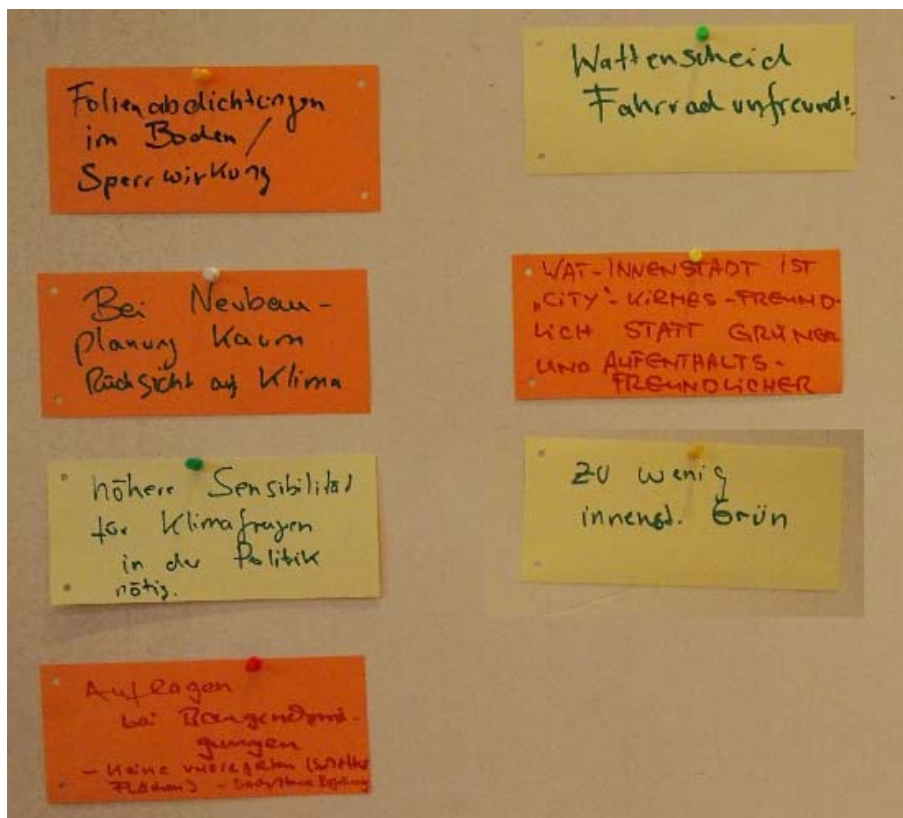 Folienabdichtungen
im Boden /
Sperrwirkung
Bei Neubau-
planung kaum
Rücksicht auf Klima
höhere Sensibilität
für Klimafragen
in der Politik
nötig.
Auflagen
bei Baugenehmi-
gungen
- Keine
Flächen) -
Wattenscheid
Fahrradunfreundl.
WAT-INNENSTADT IST
„CITY"-KIRMES-FREUND-
LICH STATT GRÜNER
UND AUFENTHALTS-
FREUNDLICHER
zu wenig
innenst. Grün